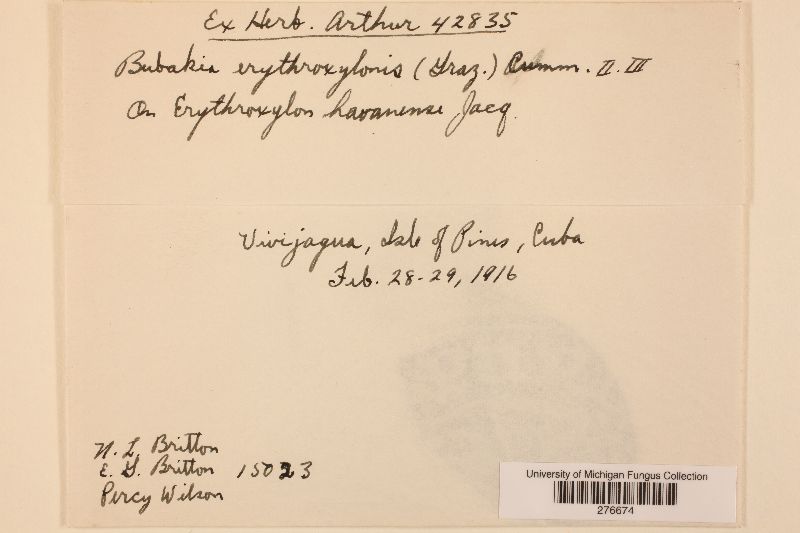 Ex Herb. Arthur 42835
Bubakia erythroxylonis (Graz.) Cumm. II. III
On Erythroxylon havanense Jacq.
Vivijagua, Isle of Pines, Cuba
Feb. 28-29, 1916
N. L. Britton
E. G. Britton 15023
Percy Wilson
University of Michigan Fungus Collection
276674